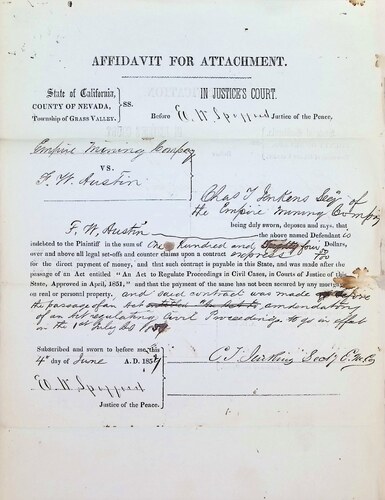 AFFIDAVIT FOR ATTACHMENT.
State of California,
COUNTY OF NEVADA,
Township of GRASS VALLEY.
SS.
IN JUSTICE'S COURT.
Before E. W. Spofford Justice of the Peace,
Empire Mining Company
VS.
F. W. Austin
Chas T Jenkens Secy of
the Empire Mining Company
being duly sworn, deposes and says, that
F. W. Austin the above named Defendant is
indebted to the Plaintiff in the sum of One hundred and four Dollars,
over and above all legal set-offs and counter claims upon a contract express
for the direct payment of money, and that such contract is payable in this State, and was made after the
passage of an Act entitled "An Act to Regulate Proceedings in Civil Cases, in Courts of Justice of this
State, Approved in April, 1851," and that the payment of the same has not been secured by any mortgage
on real or personal property, and said contract was made before
the passage of an Act amendatory
of an Act regulating Civil Proceedings to go in effect
on the 1st July AD 1859
Subscribed and sworn to before me, this
4th day of June A. D. 1859
C. T. Jenkins Secty E. M. Co
E. W. Spofford
Justice of the Peace.